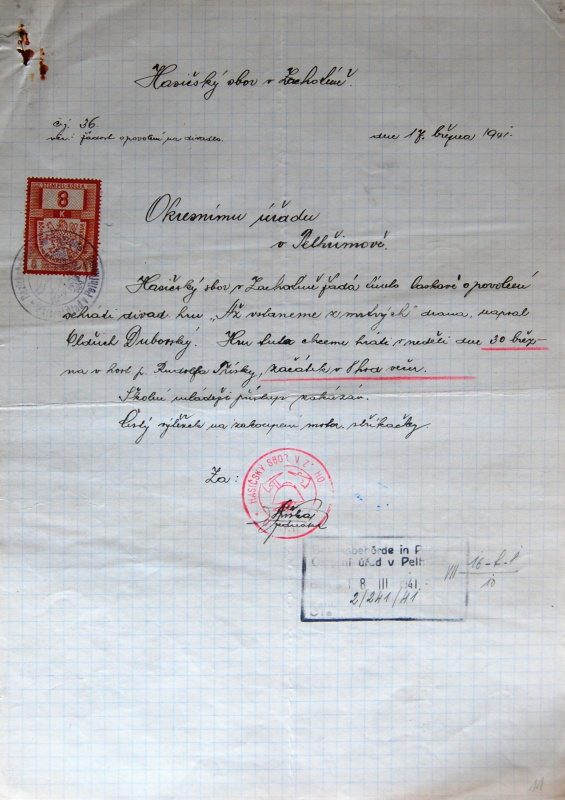 Hasičský sbor v Zacholíně.
čj. 36
věc: žádost o povolení na divadlo.
dne 17. března 1941.
STEMPEL-KOLEK
8
K
Okresnímu úřadu
v Pelhřimově.
Hasičský sbor v Zacholíně žádá tímto laskavě o povolení
sehráti divad. hru „Až vstaneme z mrtvých" drama, napsal
Oldřich Duborský. Hru tuto chceme hráti v neděli dne 30 břez-
na v host. p. Rudolfa Trisky, začátek v 8 hod večer.
Školní mládeži přístup zakázán.
Čistý výtěžek na zakoupení motor. stříkačky.
Za:
HASIČSKÝ SBOR V
jednatel
behörde in P
úřad v Pelh
8 III 41
2/241/41
VIII